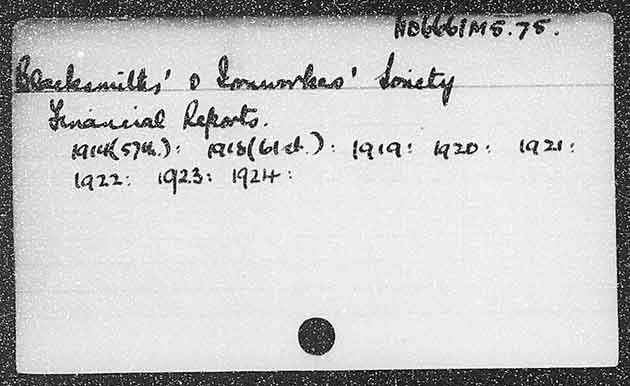 HD6661M5.75.
Blacksmiths' & Ironworkers' Society
Financial Reports.
1914(57th.): 1918(61st.): 1919: 1920: 1921:
1922: 1923: 1924: